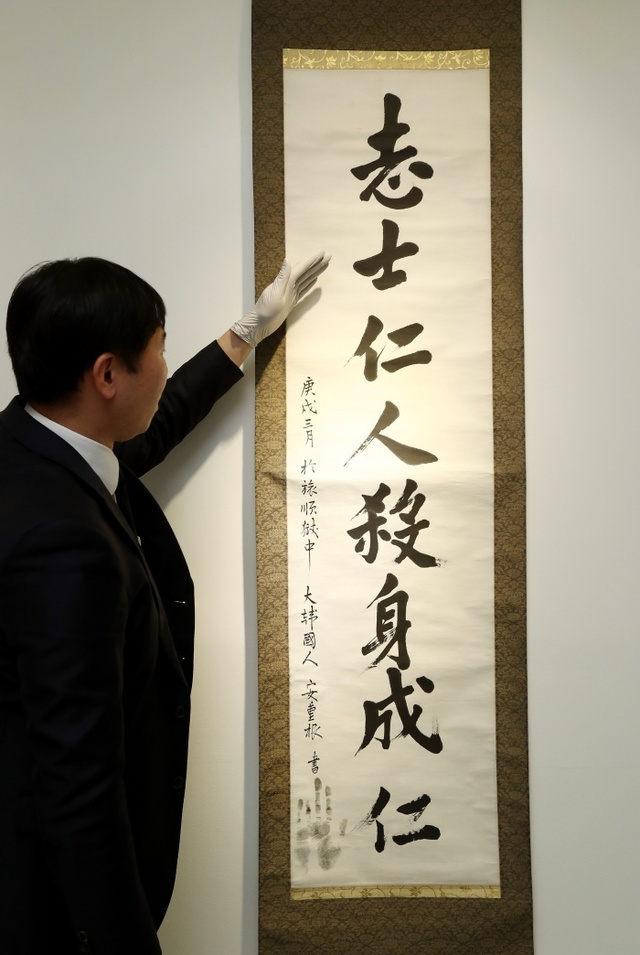 志士仁人殺身成仁
庚戌三月 於旅順獄中 大韓國人 安重根 書